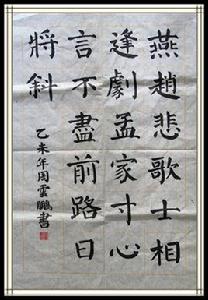 燕趙悲歌士相
逢劇孟家寸心
言不盡前路日
將斜
乙未年周雲鵬書